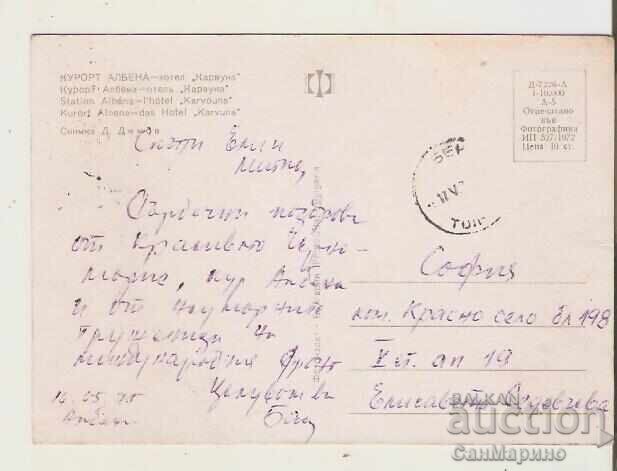 КУРОРТ АЛБЕНА—хотел „Карвуна"
Курорт Албена—отель „Карвуна"
Station Albéna—l'hôtel „Karvouna"
Kurort Albena—das Hotel „Karvuna"
Снимка Д. Димов
Д-7226-А
1-10,000
А-5
Отпечатано
във
Фотографика
ИП 527/1972
Цена 10 ст.
Скъпи Елин
Митко,
Сърдечни поздрави
от красивото Черно-
морие, кур Албена
и от неуморните
труженици на
международния фронт
Целувки
Бащ
16.05.75
Албена
София
жк. Красно село бл 198
V ет. ап 19
Елисавета
BALKAN
auction
СанМарино